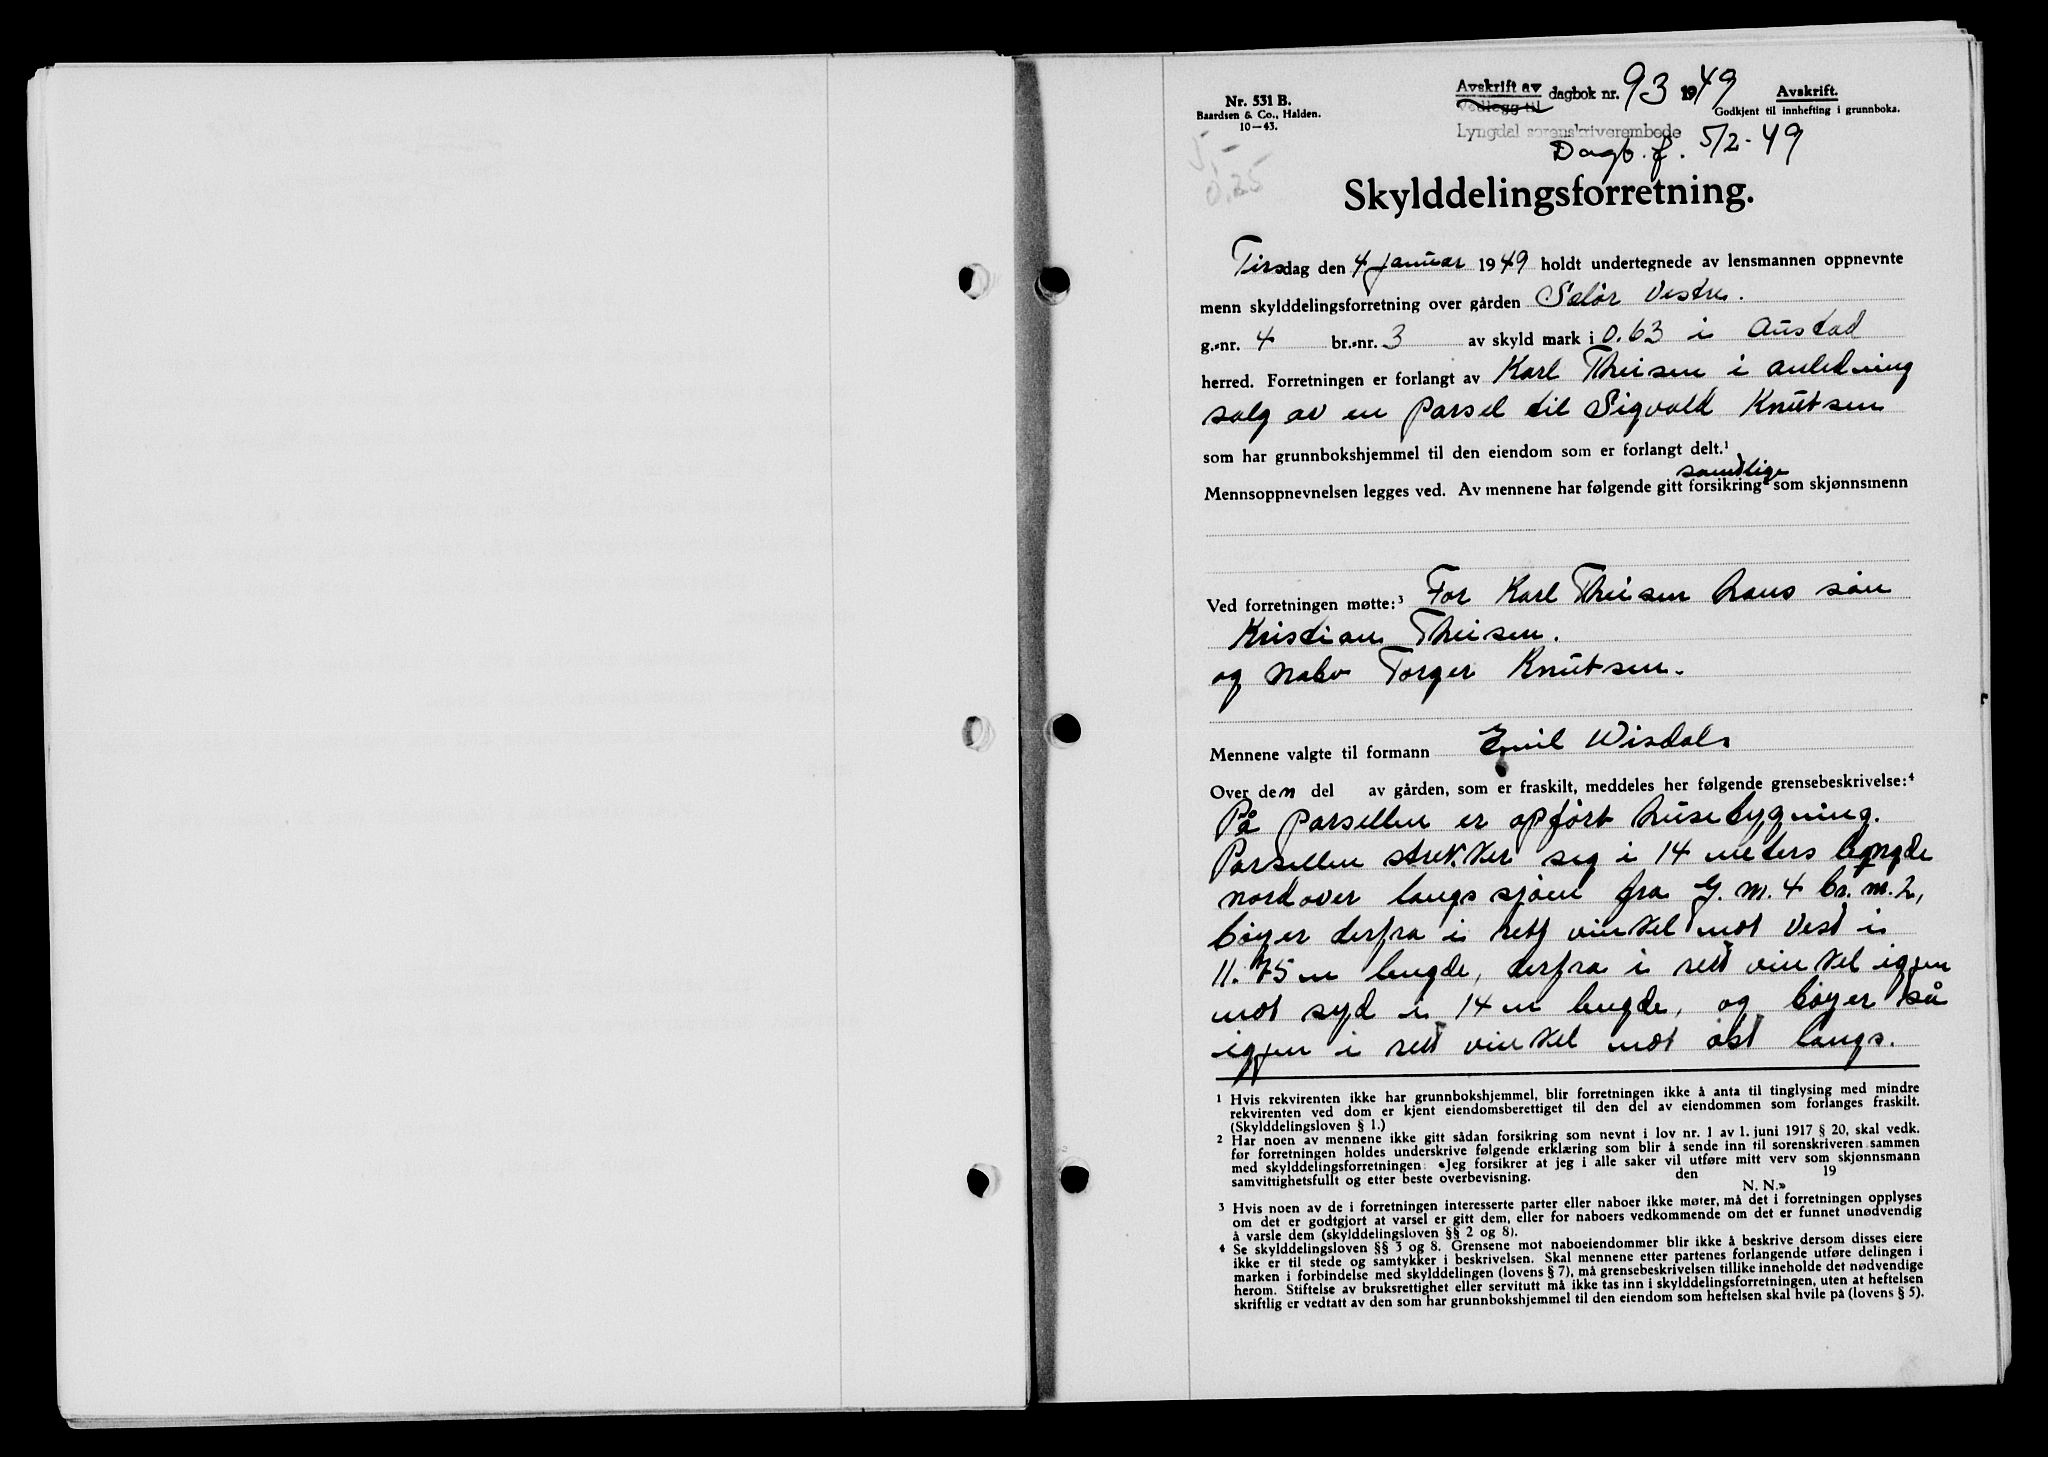 Nr. 531 B.
Baardsen & Co., Halden.
10—43.
5,-
0.25
Avskrift av dagbok nr. 93 1949
vedlegg til
Avskrift.
Godkjent til innhefting i grunnboka.
Lyngdal sorenskriverembede
Dagb. f. 5/2-49
Skylddelingsforretning.
Tirsdag den 4 januar 1949 holdt undertegnede av lensmannen oppnevnte
menn skylddelingsforretning over gården Selör Vestre.
g.-nr. 4 br.-nr. 3 av skyld mark i 0.63 i Austad
herred. Forretningen er forlangt av Karl Theisen i anledning
salg av en parsel til Sigvald Knutsen
som har grunnbokshjemmel til den eiendom som er forlangt delt.1
samtlige
Mennsoppnevnelsen legges ved. Av mennene har følgende gitt forsikring2 som skjønnsmenn
Ved forretningen møtte:3 For Karl Theisen hans sön
Kristian Theisen.
og nabo Torger Knutsen.
Mennene valgte til formann Emil Wisdal
Over den del av gården, som er fraskilt, meddeles her følgende grensebeskrivelse:4
På parsellen er opfört husebygning.
Parsellen strekker seg i 14 meters lengde
nordover langs sjöen fra G. nr. 4 br. nr. 2,
böyer derfra i rett vinkel mot Vest i
11.75 m lengde, derfra i rett vinkel igjen
mot syd i 14 m lengde, og böyer så
igjen i rett vinkel mot öst langs.
1 Hvis rekvirenten ikke har grunnbokshjemmel, blir forretningen ikke å anta til tinglysing med mindre
rekvirenten ved dom er kjent eiendomsberettiget til den del av eiendommen som forlanges fraskilt.
(Skylddelingsloven § 1.)
2 Har noen av mennene ikke gitt sådan forsikring som nevnt i lov nr. 1 av 1. juni 1917 § 20, skal vedk.
før forretningen holdes underskrive følgende erklæring som blir å sende inn til sorenskriveren sammen
med skylddelingsforretningen: «Jeg forsikrer at jeg i alle saker vil utføre mitt verv som skjønnsmann
samvittighetsfullt og etter beste overbevisning. den 19
N. N.»
3 Hvis noen av de i forretningen interesserte parter eller naboer ikke møter, må det i forretningen opplyses
om det er godtgjort at varsel er gitt dem, eller for naboers vedkommende om det er funnet unødvendig
å varsle dem (skylddelingsloven §§ 2 og 8).
4 Se skylddelingsloven §§ 3 og 8. Grensene mot naboeiendommer blir ikke å beskrive dersom disses eiere
ikke er til stede og samtykker i beskrivelsen. Skal mennene etter partenes forlangende utføre delingen i
marken i forbindelse med skylddelingen (lovens § 7), må grensebeskrivelsen tillike inneholde det nødvendige
herom. Stiftelse av bruksrettighet eller servitutt må ikke tas inn i skylddelingsforretningen, uten at heftelsen
skriftlig er vedtatt av den som har grunnbokshjemmel til den eiendom som heftelsen skal hvile på (lovens § 5).